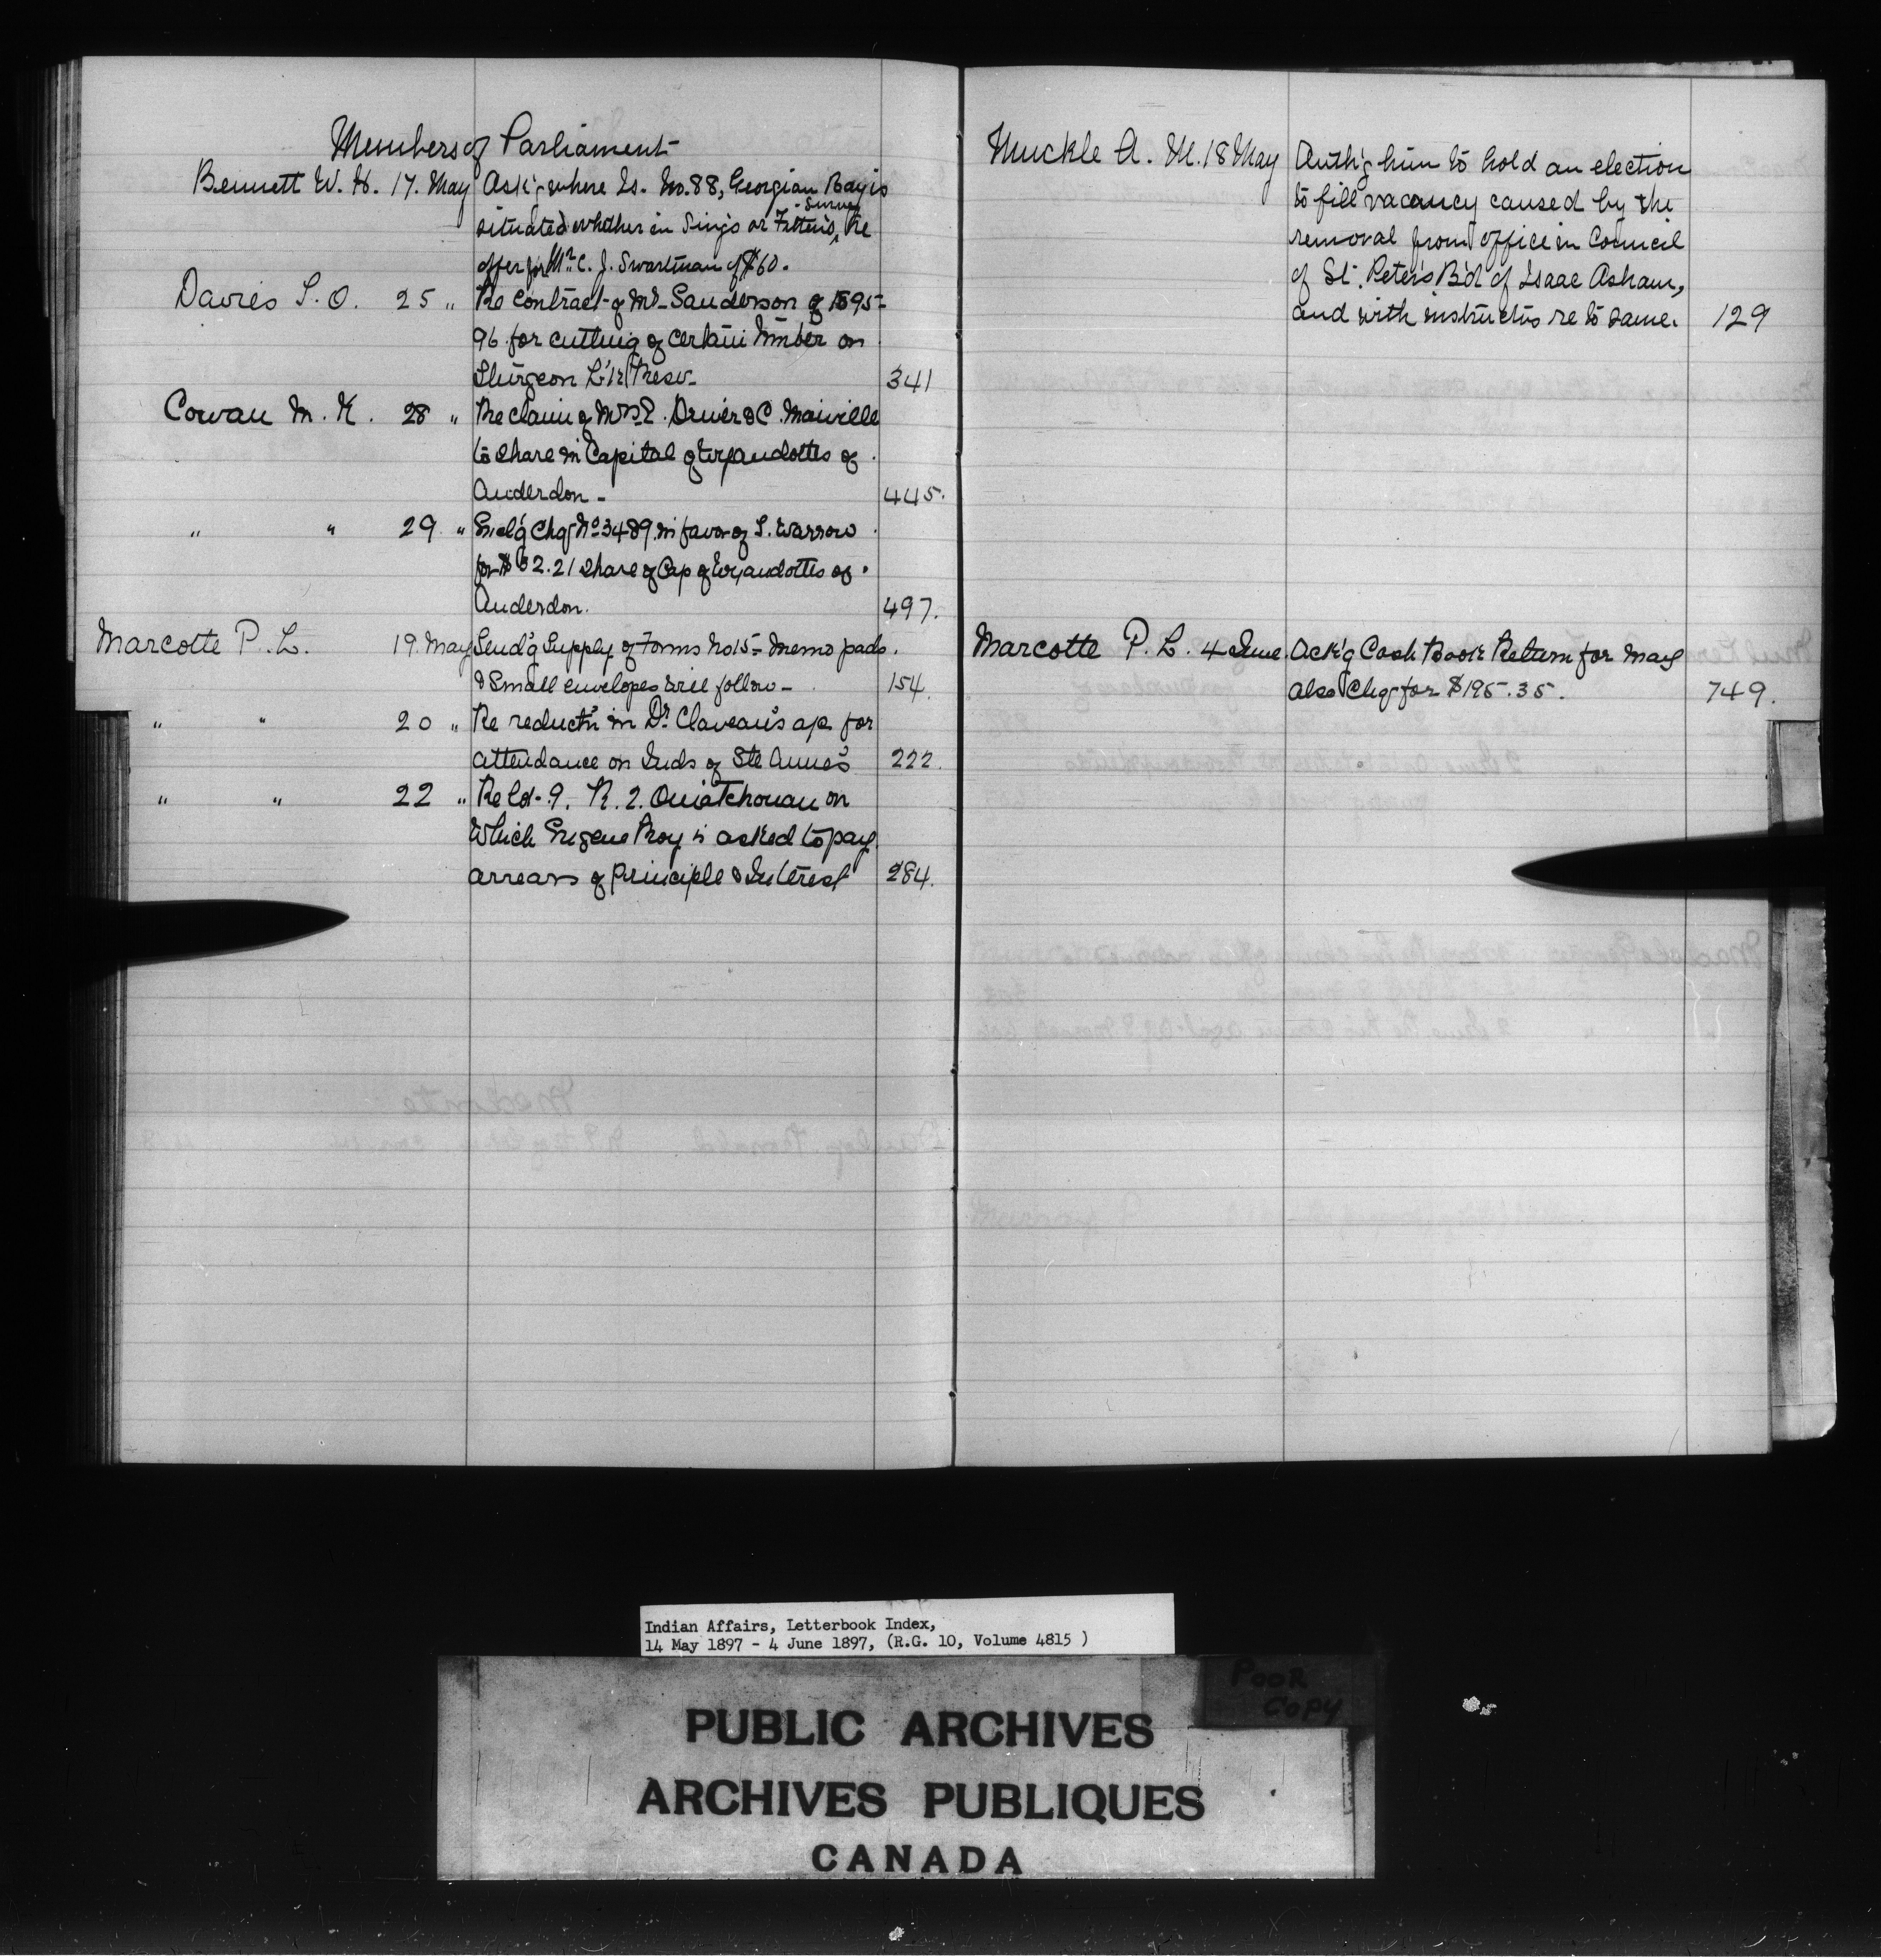 Members of Parliament
Bennett W. H. 17. May Ask'g where Is. No. 88, Georgian Bay is
situated whether in Sing's or Fitten's Survey, Re
offer for Mr. C. J. Swartman of $60.
Davies T. O. 25 " Re contract of Mr. Sanderson of 1895-
96 for cutting of certain timber on
Sturgeon L'k Resv. 341
Cowan M. K. 28 " Re claim of Mrs E. Driver & C. Maiville
to share in Capital of Wyandottes of
Anderdon - 445.
" " 29 " Encl'g Chq No 3489 in favor of S. Warrow
for $ 2.21 share of Cap of Wyandottes of
Anderdon. 497.
Marcotte P. L. 19. May Send'g Supply of Forms No 15- Memo pads.
& Small envelopes will follow - 154.
" " 20 " Re reduct'n in Dr. Claveau's a/c for
attendance on Inds of Ste Anne's 222.
" " 22 " Re Lot 9. R. 2. Ouiatchouan on
which Eugene Roy is asked to pay
arrears of Principle & Interest 284.
Muckle A. M. 18 May Auth'g him to hold an election
to fill vacancy caused by the
removal from office in Council
of St. Peter's B'd of Isaac Asham,
and with instruct'ns re to same. 129
Marcotte P. L. 4 June. Ack'g Cash Book Return for May
also Chq for $195.35. 749.
Indian Affairs, Letterbook Index,
14 May 1897 - 4 June 1897, (R.G. 10, Volume 4815 )
POOR
COPY
PUBLIC ARCHIVES
ARCHIVES PUBLIQUES
CANADA